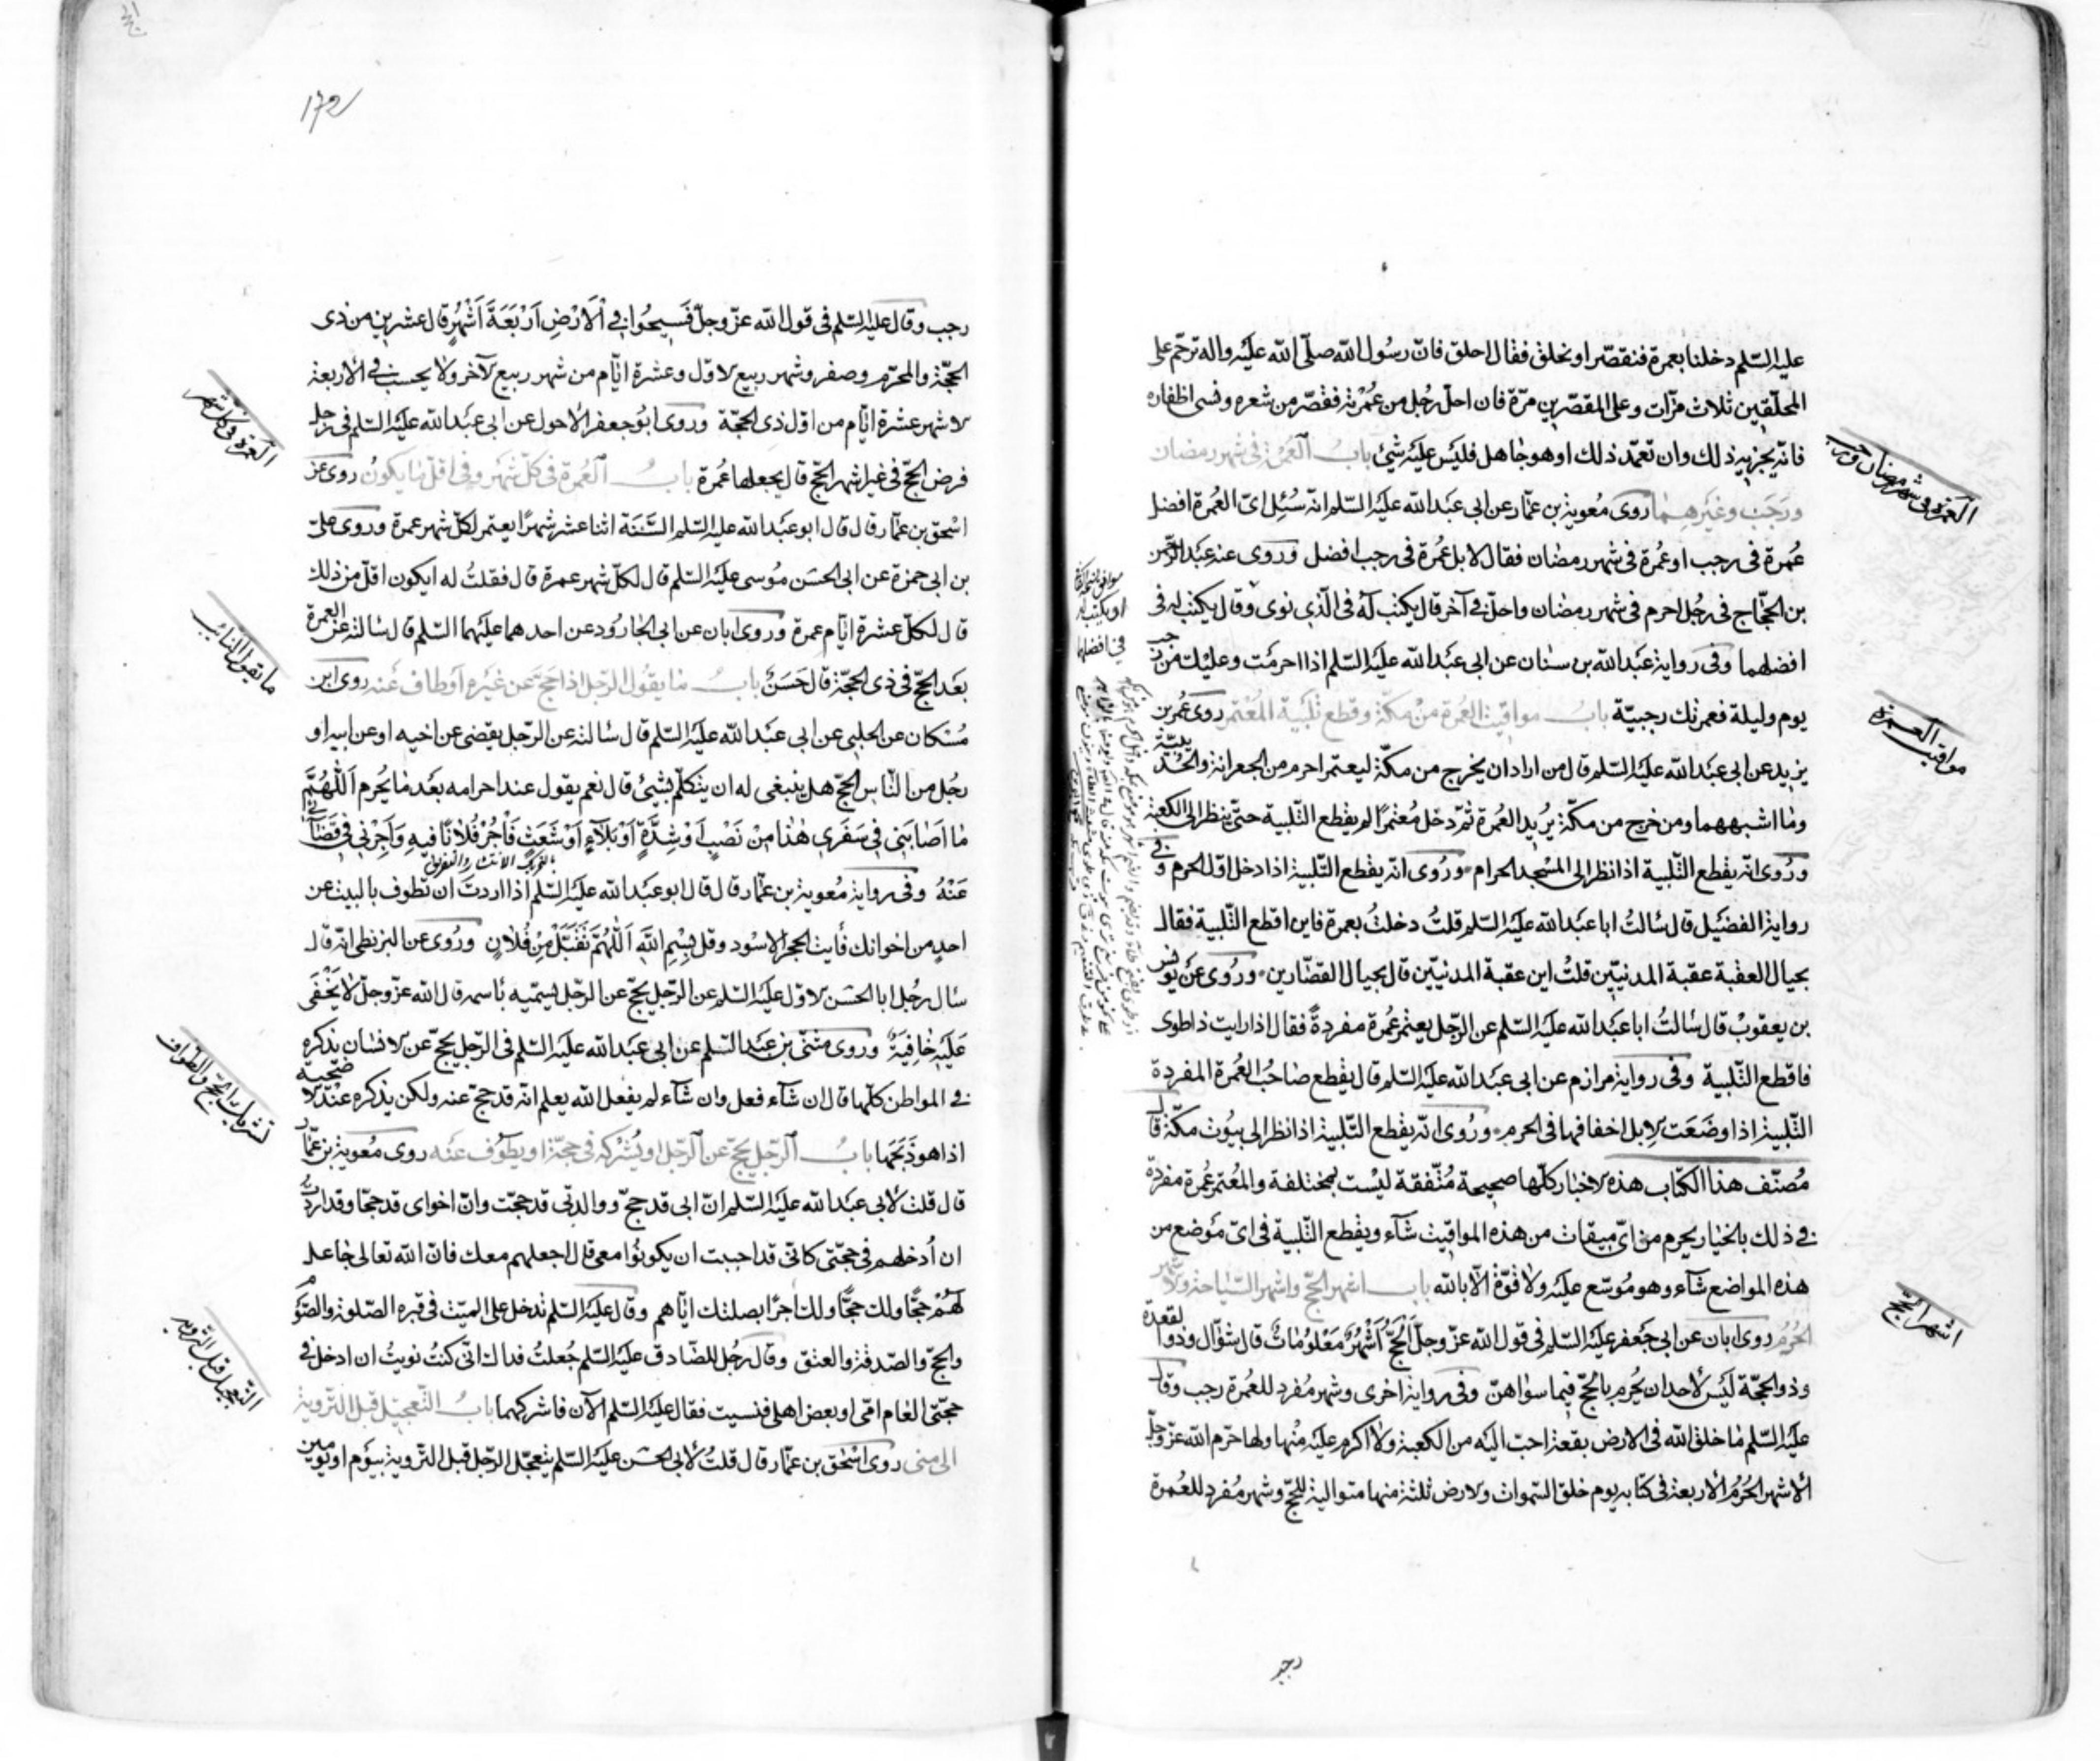 عليه السّلم دخلنا بعمرة فنقصّر او نحلق فقال احلق فانّ رسُول الله صلّى الله عليْه واله ترحّم على
المحلّقين ثلاث مرّات وعلى المقصّرين مرّة فان احلّ رجُل من عُمرته فقصّر من شعره ونسى اظفاره
فانّه يجزيه ذلك وان تعمّد ذلك او هو جاهل فليْس عليْه شئ بابُ العُمرة فى شهر رمضان
ورجَب وغيرهمــا روى مُعوية بن عمّار عن ابى عبْد الله عليْه السّلم انّه سُئِل اىّ العُمرة افضل
عُمرة فى رجب او عُمرة فى شهر رمضان فقال لا بل عُمرة فى رجب افضل وروى عنه عبْد الرّحمن
بن الحجّاج فى رجُل احرم فى شهر رمضان واحلّ فى آخر قال يكتب له فى الّذى نوى وقال يكتب له فى
افضلهما وفى رواية عبْد الله بن سنان عن ابى عبْد الله عليْه السّلم اذا احرمْت وعليْك من رجب
يوم وليلة فعمرتك رجبيّة بابُ مواقيت العُمرة منْ مكّة وقطع تلبية المُعْتمر روى عُمر بن
يزيد عن ابى عبْد الله عليْه السّلم قال من اراد ان يخرج من مكّة ليعتمر احرم من الجعرانة والحُديْبيّة
وما اشبههما ومن خرج من مكّة يُريد العُمرة ثمّ دخل مُعْتمرًا لم يقطع التّلبية حتّى ينظر الى الكعبة
ورُوى انّه يقطع التّلبية اذا نظر الى المسْجد الحرام ورُوى انّه يقطع التّلبية اذا دخل اوّل الحرم وفى
رواية الفضيْل قال سالتُ ابا عبْد الله عليْه السّلم قلتُ دخلتُ بعمرة فاين اقطع التّلبية فقال
بحيال العقبة عقبة المدنيّين قلتُ اين عقبة المدنيّين قال بحيال القصّارين ورُوى عنْ يونس
بن يعقوبْ قال سالتُ ابا عبْد الله عليْه السّلم عن الرّجل يعتمر عُمرة مفردةً فقال اذا رايت ذا طوى
فاقطع التّلبية وفى رواية مرازم عن ابى عبْد الله عليْه السّلم قال يقطع صاحبُ العُمرة المفردة
التّلبية اذا وضعَت الابل اخفافها فى الحرم ورُوى انّه يقطع التّلبية اذا نظر الى بيُوت مكّة قال
مُصنّف هذا الكتاب هذه الاخبار كلّها صحيحة مُتّفقة ليْست بمختلفة والمُعتمر عُمرة مفردة
فى ذلك بالخيار يحرم من اىّ ميقات من هذه المواقيت شآء ويقطع التّلبية فى اىّ موْضع من
هذه المواضع شآء وهو مُوسّع عليْه ولا قوّة الّا بالله بابُ اشهر الحجّ واشهر السّياحة والاشهر
الحُرُم روى ابان عن ابى جعفر عليْه السّلم فى قول الله عزّ وجلّ اَلْحَجُّ اَشْهُرٌ مَعْلُومَاتٌ قال شوّال وذوا لقعدة
وذو الحجّة ليْس لاحد ان يُحرم بالحجّ فيما سواهنّ وفى رواية اخرى وشهر مُفرد للعُمرة رجب وقال
عليْه السّلم ما خلق الله فى الارض بقعة احبّ اليْه من الكعبة ولا اكرم عليْه منْها ولها حرّم الله عزّ وجلّ
الاشهر الحُرُم الاربعة فى كتابه يوم خلق السّموات والارض ثلثة منها متوالية للحجّ وشهر مُفرد للعُمرة
رجب
العمرة فى شهر رمضان ورجب
مواقيت العـمرة
اشهر الحّج
او يكتب له
فى افضلهما
172
رجب وقال عليْه السّلم فى قول الله عزّ وجلّ فَسِيحُوا فِى اْلاَرْضِ اَرْبَعَةَ اَشْهُرٍ قال عشرين من ذى
الحجّة والمحرّم وصفر وشهر ربيع الاوّل وعشرة ايّام من شهر ربيع الآخر ولا يحسب فى الاربعة
الاشهر عشرة ايّام من اوّل ذى الحجّة وروى ابُوجعفر الاحول عن ابى عبْد الله عليْه السّلم فى رجل
فرض الحجّ فى غير اشهر الحجّ قال يجعلها عُمرة بابُ العُمرة فى كلّ شهر وفى اقلّ ما يكونُ روى عن
اسْحق بن عمّار قال قال ابو عبْد الله عليه السّلم السَّنَة اثنا عشر شهرًا يعتمر لكلّ شهر عمرة وروى علىّ
بن ابى حمزة عن ابى الحسَن مُوسى عليْه السّلم قال لكلّ شهر عمرة قال فقلتُ له ايكون اقلّ من ذلك
قال لكلّ عشرة ايّام عمرة وروى ابان عن ابى الجارُود عن احدهما عليْهما السّلم قال سالته عن العمرة
بعْد الحجّ فى ذى الحجّة قال حَسَنٌ بابُ ما يقُول الرّجل اذا حجّ عن غيْره او طاف عنْه روى ابن
مُسْكان عن الحلبى عن ابى عبْد الله عليْه السّلم قال سالته عن الرّجل يقضى عن اخيه او عن ابيه او
رجُل من النّاس الحجّ هل ينبغى له ان يتكلّم بشئ قال نعم يقول عند احرامه بعْد ما يُحرم اَللّهُمَّ
ما اَصَابَنِى فِى سَفَرِى هٰذا مِنْ نَصْبٍ اَوْ شِدَّةٍ اَوْ بَلآءٍ اَوْ شَعَثٍ فَاْجُرْ فُلاَنًا فِيهِ وَاْجُرْنِى فِى قَضَآئِى
عَنْهُ وفى رواية مُعوية بن عمّار قال قال ابو عبْد الله عليْه السّلم اذا اردتَ ان تطوف بالبيت عن
احدٍ من اخوانك فأيت الحجر الاسْود وقل بِسْمِ اللهِ اَللّهُمَّ تَقَبَّلْ مِنْ فُلاَنٍ ورُوى عن البزنطى انّه قال
سال رجُل ابا الحسن الاوّل عليْه السّلم عن الرّجل يحجّ عن الرّجل يسمّيه باسمه قال الله عزّ وجلّ لا يَخْفَى
عَلَيْهِ خَافِيَةٌ وروى مثنّى بن عبْد السّلم عن ابى عبْد الله عليْه السّلم فى الرّجل يحجّ عن الانسان يذكره
فى المواطن كلّها قال ان شآء فعل وان شآء لم يفعل الله يعلم انّه قد حجّ عنه ولكن يذكره عنْد الاضحية
اذا هو ذبَحَها بابُ الرّجل يحجّ عن الرّجل او يُشْركه فى حجّة او يطوف عنْه روى مُعوية بن عمّار
قال قلت لأبى عبْد الله عليْه السّلم انّ ابى قد حجّ ووالدتى قد حجّت وانّ اخواى قد حجّا وقد اردت
ان اُدخلهم فى حجّتى كانّى قد احببت ان يكونوُا معى قال اجعلهم معك فانّ الله تعالى جاعل
لهُمْ حجًّا ولك حجًّا ولك اجرًا بصلتك ايّاهم وقال عليْه السّلم تدخل على الميّت فى قبره الصّلوة والصّوم
والحجّ والصّدقة والعتق وقال رجُل للصّادق عليْه السّلم جُعلتُ فداك انّى كنتُ نويتُ ان ادخل فى
حجّتى العام امّى او بعض اهلى فنسيت فقال عليْه السّلم الآن فاشركهما بابُ التّعجيل قبل التّروية
الى منى روى اسْحق بن عمّار قال قلتُ لأبى الحسن عليْه السّلم يتعجّل الرّجل قبل التّروية بيوْم او يوْمين
العمرة فى كل شهر
ما يقول النائب
تشريك الحجّ والطواف
التعجيل قبل التروية